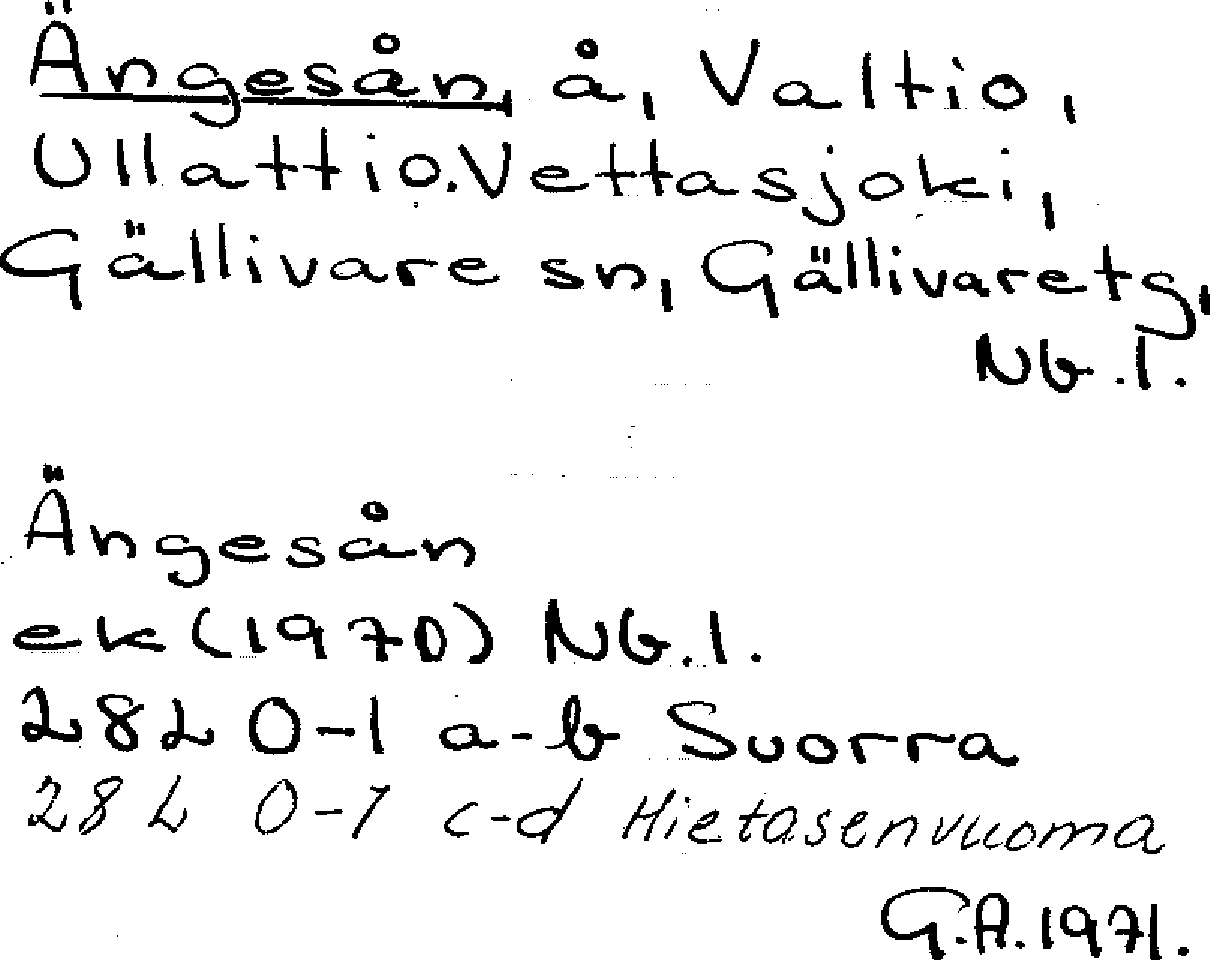 Ängesån, å, Valtio,
Ullattio.Vettasjoki,
Gällivare sn, Gällivaretg,
Nb.l.
Ängesån
ek (1970) Nb.l.
28L 0-1 a-b Suorra
28L 0-1 c-d Hietasenvuoma
G.A.1971.